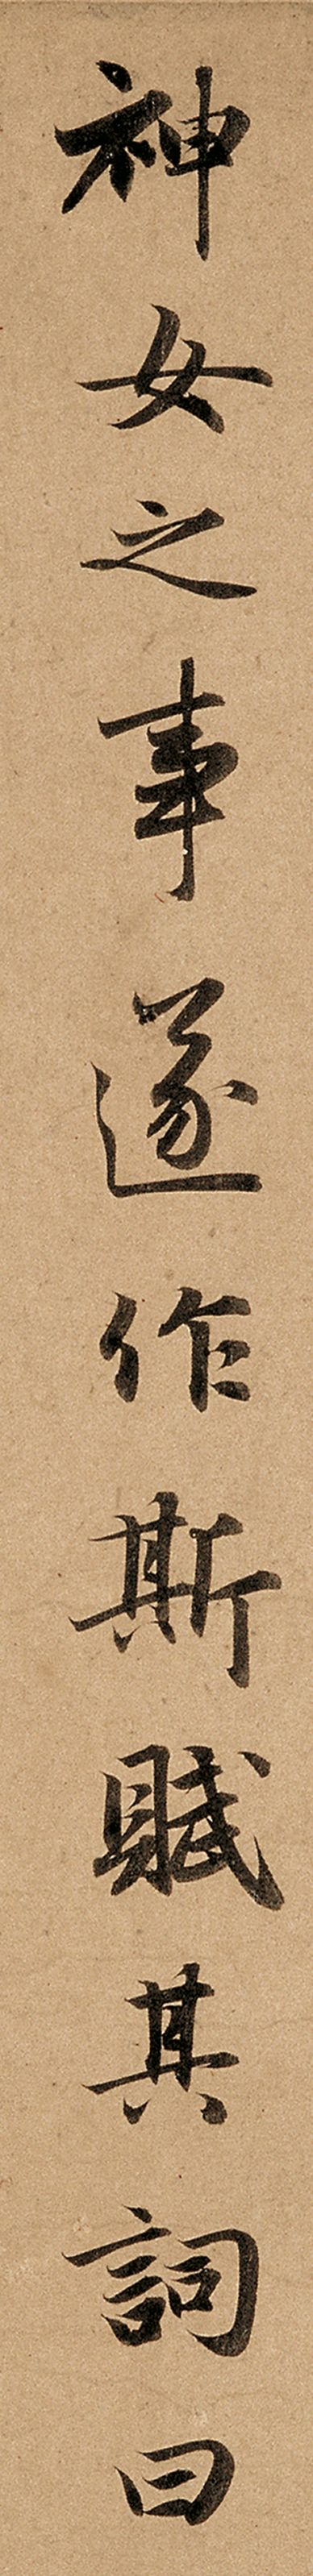 神女之事遂作斯賦其詞曰